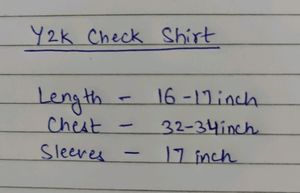 Y2K Check Shirt
Length - 16-17 inch
Chest - 32-34 inch
Sleeves - 17 inch